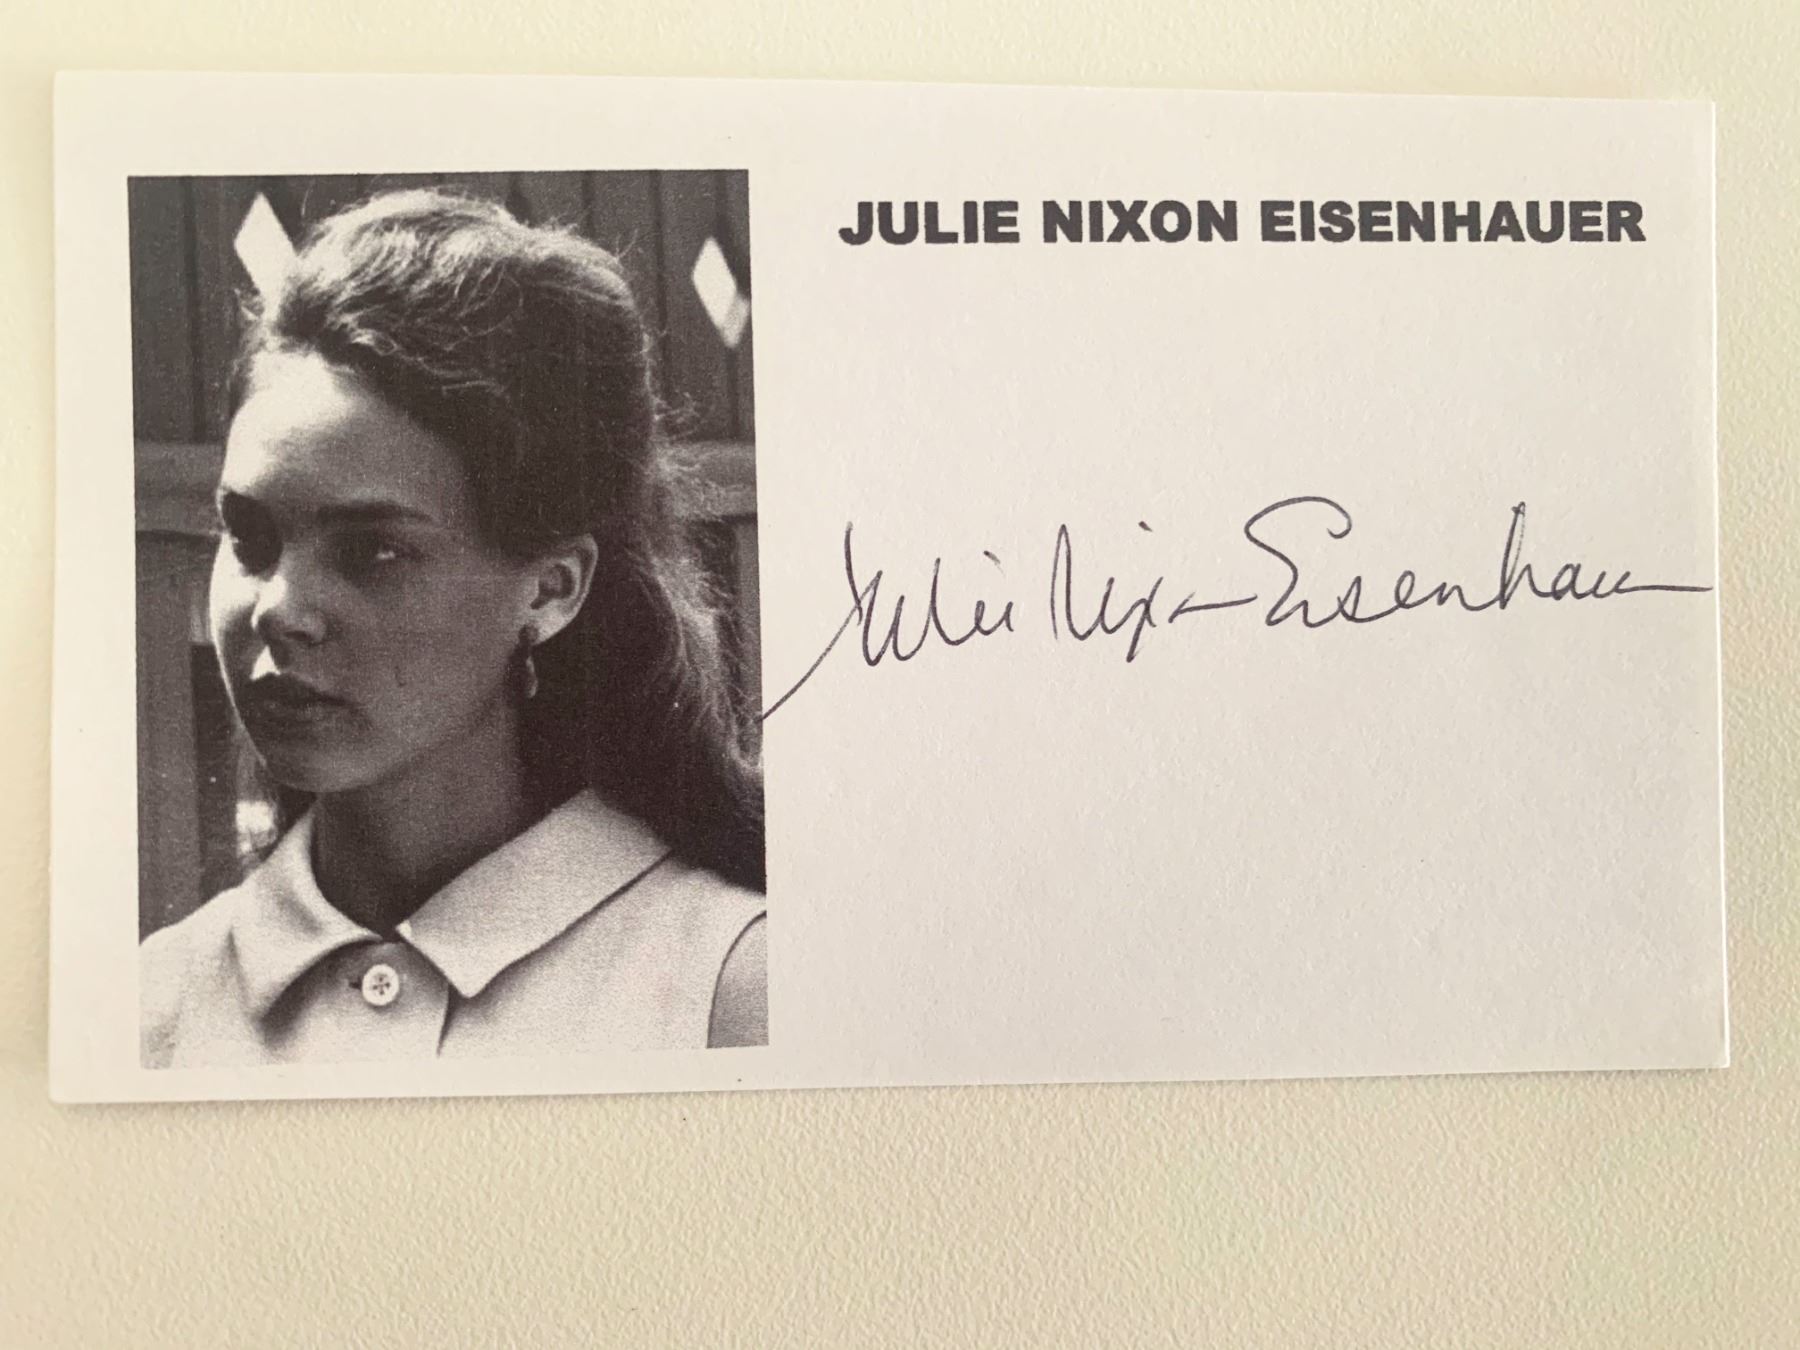 JULIE NIXON EISENHAUER
Julie Nixon Eisenhauer